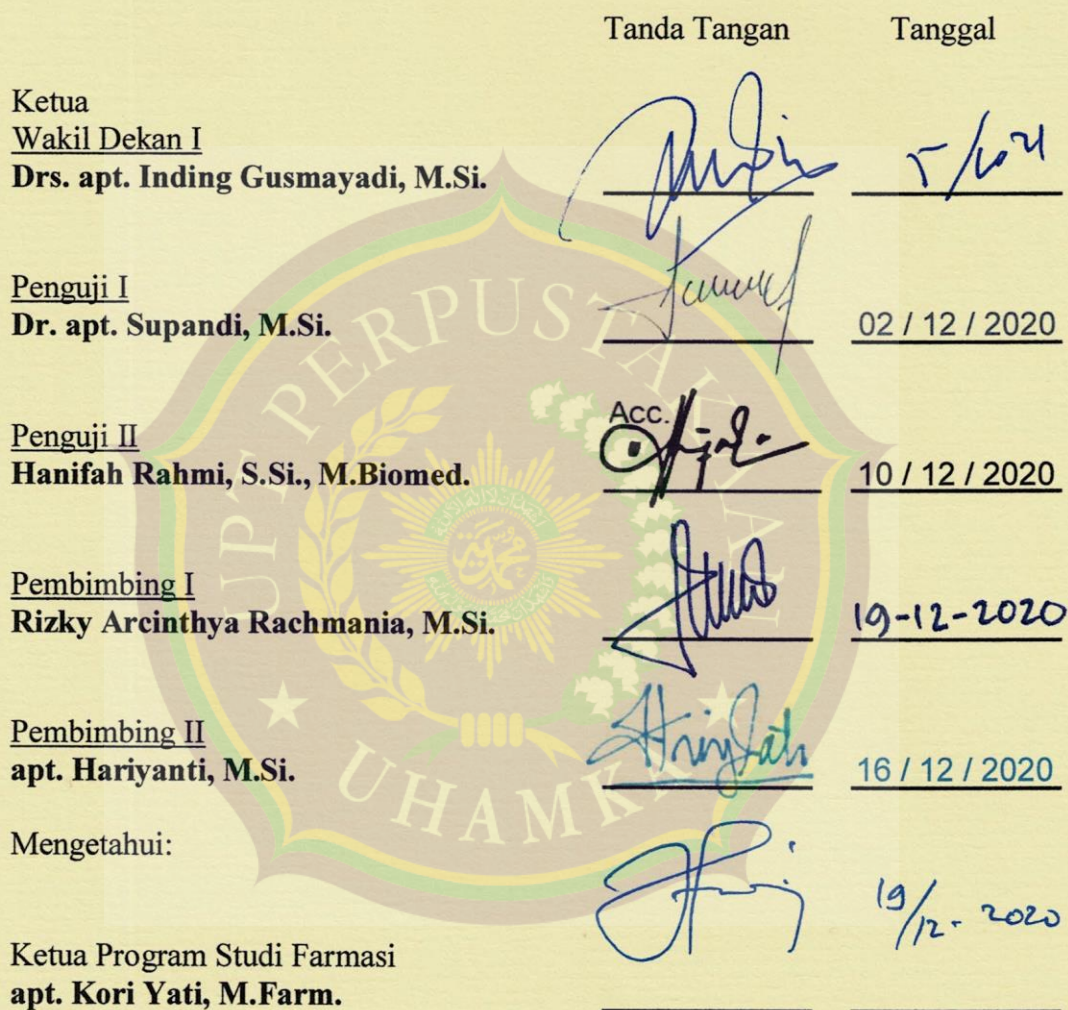 Tanda Tangan Tanggal
Ketua
Wakil Dekan I
Drs. apt. Inding Gusmayadi, M.Si.
Penguji I
Dr. apt. Supandi, M.Si.
02 / 12 / 2020
Acc.
Penguji II
Hanifah Rahmi, S.Si., M.Biomed.
10 / 12 / 2020
Pembimbing I
Rizky Arcinthya Rachmania, M.Si.
19-12-2020
Pembimbing II
apt. Hariyanti, M.Si.
16 / 12 / 2020
Mengetahui:
19/12- 2020
Ketua Program Studi Farmasi
apt. Kori Yati, M.Farm.
UPT PERPUSTAKAAN
UHAMKA